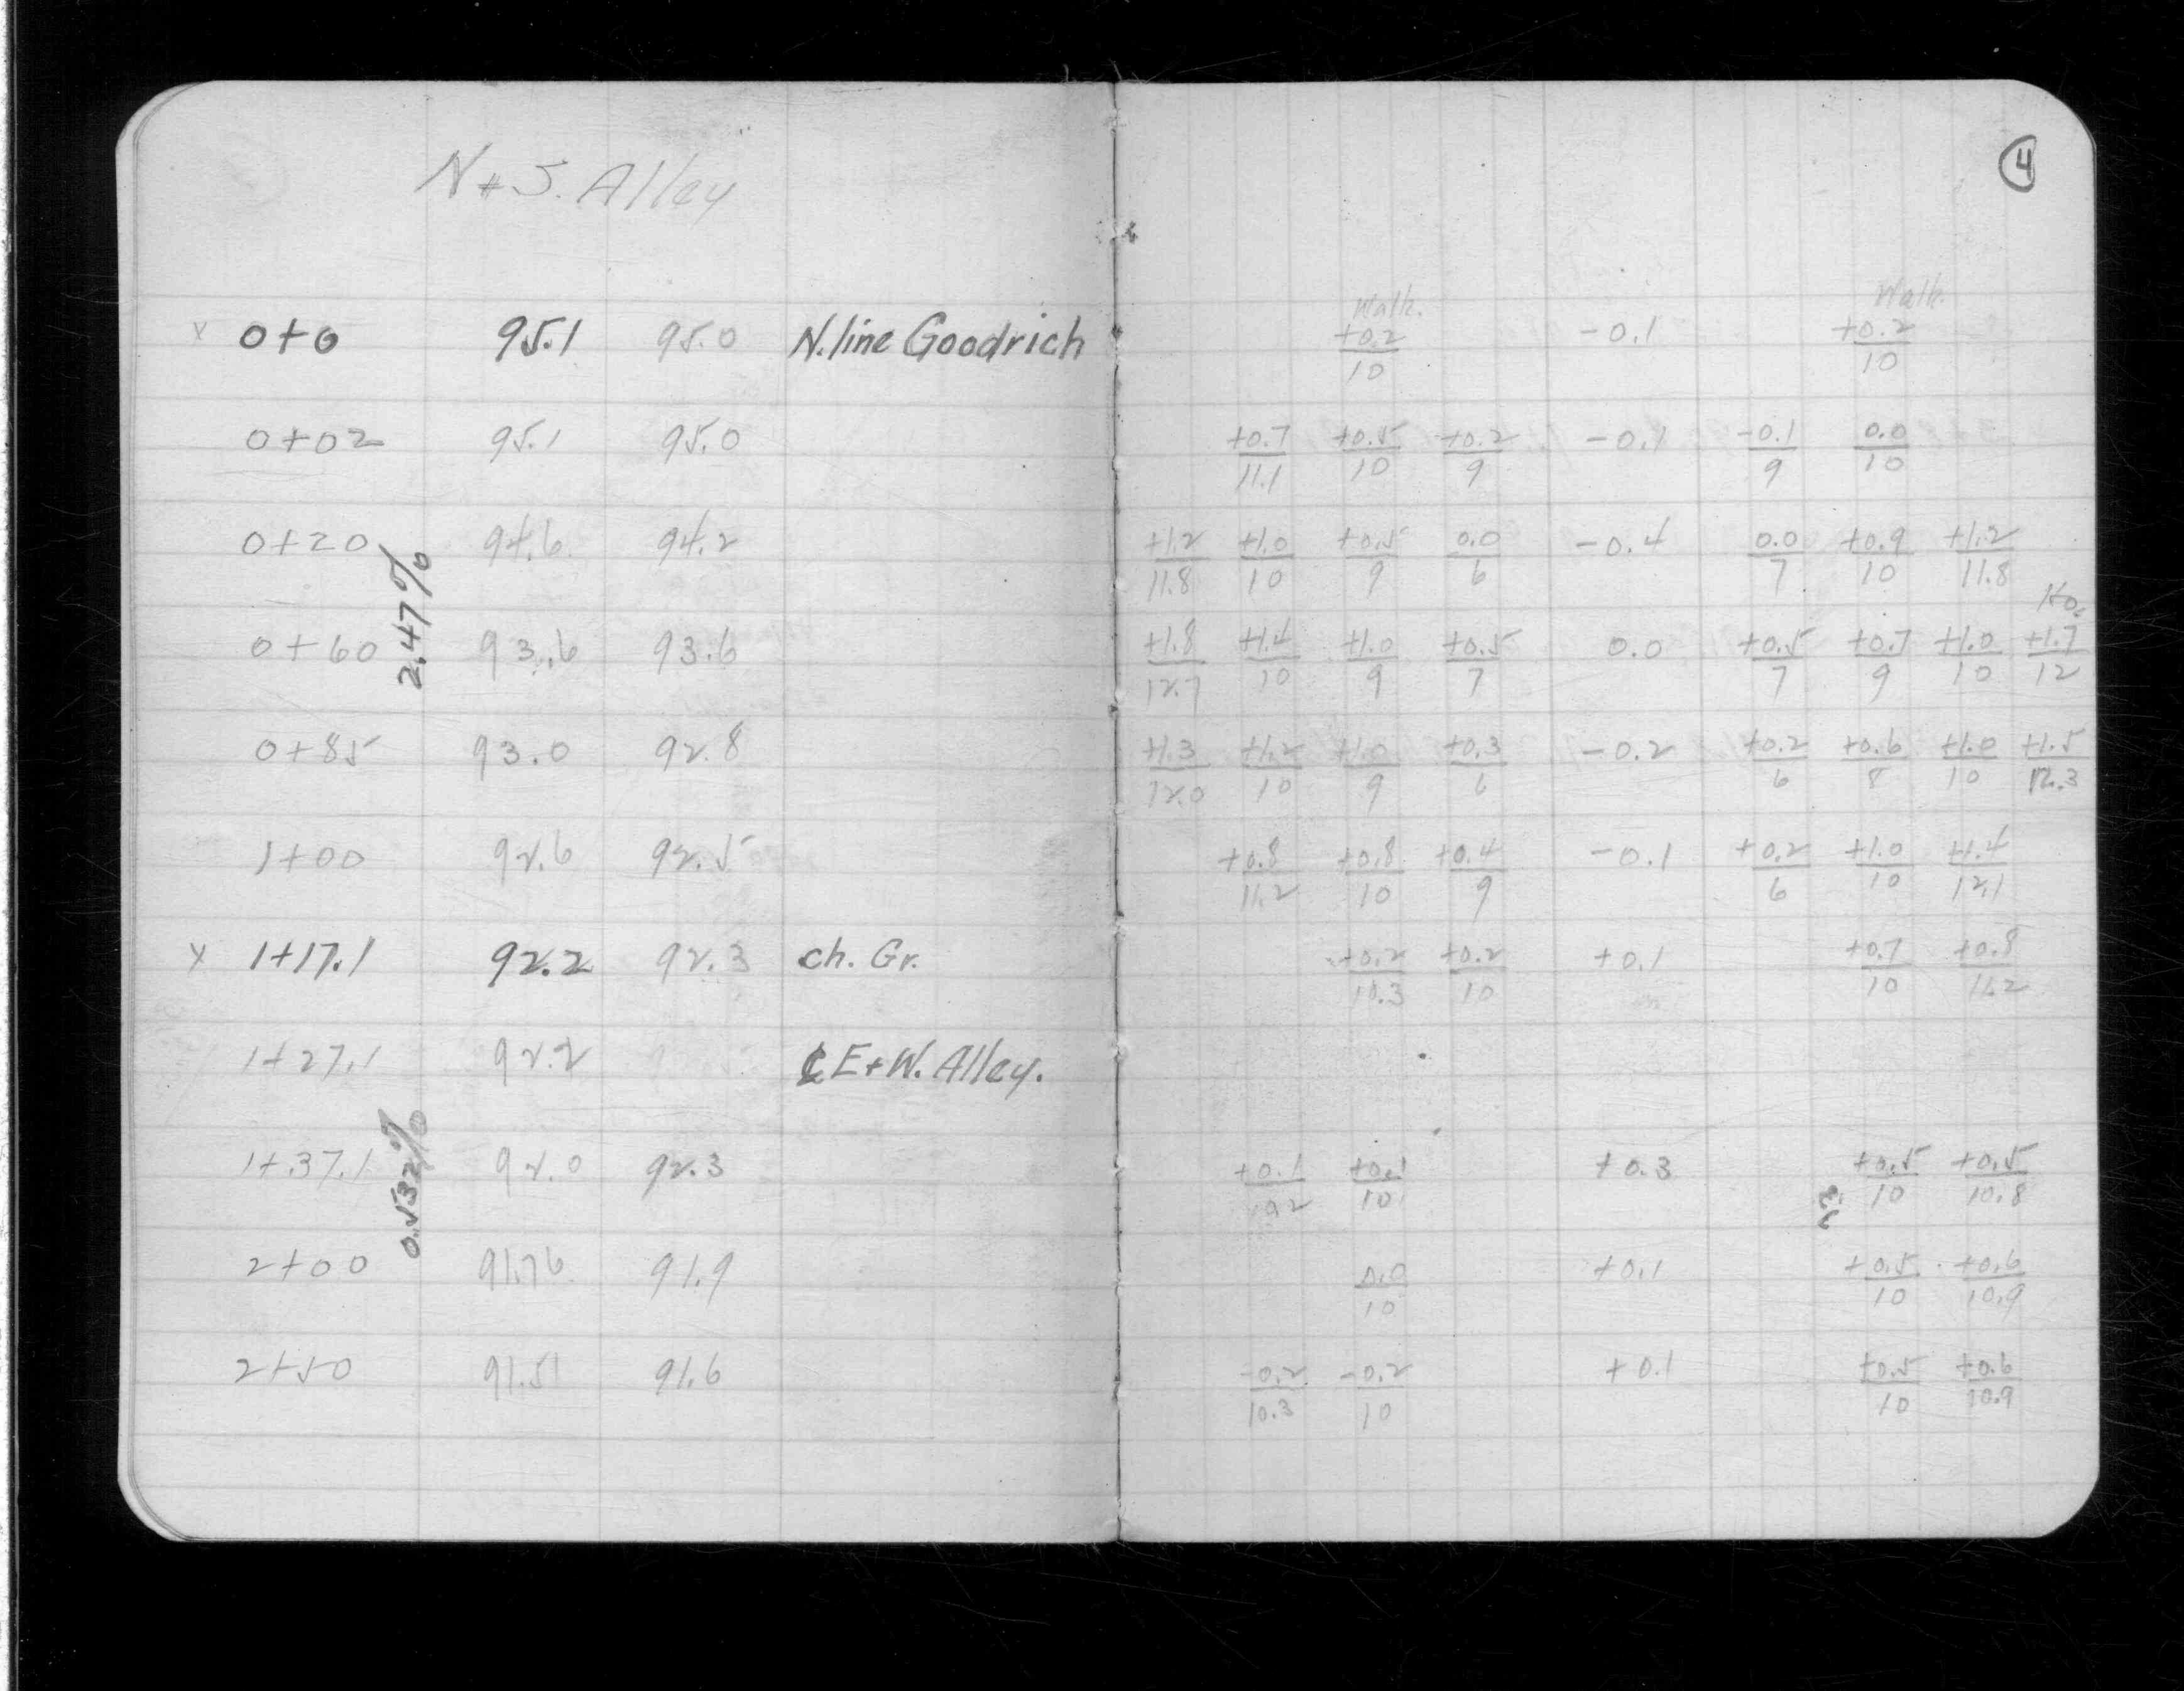 4
N+S. Alley
Walk. Walk.
x 0+0 95.1 95.0 N. line Goodrich +0.2/10 -0.1 +0.2/10
0+02 95.1 95.0 +0.7/11.1 +0.5/10 +0.2/9 -0.1 -0.1/9 0.0/10
0+20 94.6 94.2 +1.2/11.8 +1.0/10 +0.5/9 0.0/6 -0.4 0.0/7 +0.9/10 +1.2/11.8
2.47%
0+60 93.6 93.6 +1.8/12.7 +1.4/10 +1.0/9 +0.5/7 0.0 +0.5/7 +0.7/9 +1.0/10 +1.7/12
0+85 93.0 92.8 +1.3/12.0 +1.2/10 +1.0/9 +0.3/6 -0.2 +0.2/6 +0.6/8 +1.0/10 +1.5/12.3
1+00 92.6 92.5 +0.8/11.2 +0.8/10 +0.4/9 -0.1 +0.2/6 +1.0/10 +1.4/12.1
x 1+17.1 92.2 92.3 ch. Gr. +0.2/10.3 +0.2/10 +0.1 +0.7/10 +0.8/11.2
1+27.1 92.2 ℄ E+W. Alley.
1+37.1 92.0 92.3 +0.1/10.2 +0.1/10 +0.3 +0.5/10 +0.5/10.8
0.532%
2+00 91.76 91.9 0.0/10 +0.1 +0.5/10 +0.6/10.9
2+50 91.51 91.6 -0.2/10.3 -0.2/10 +0.1 +0.5/10 +0.6/10.9